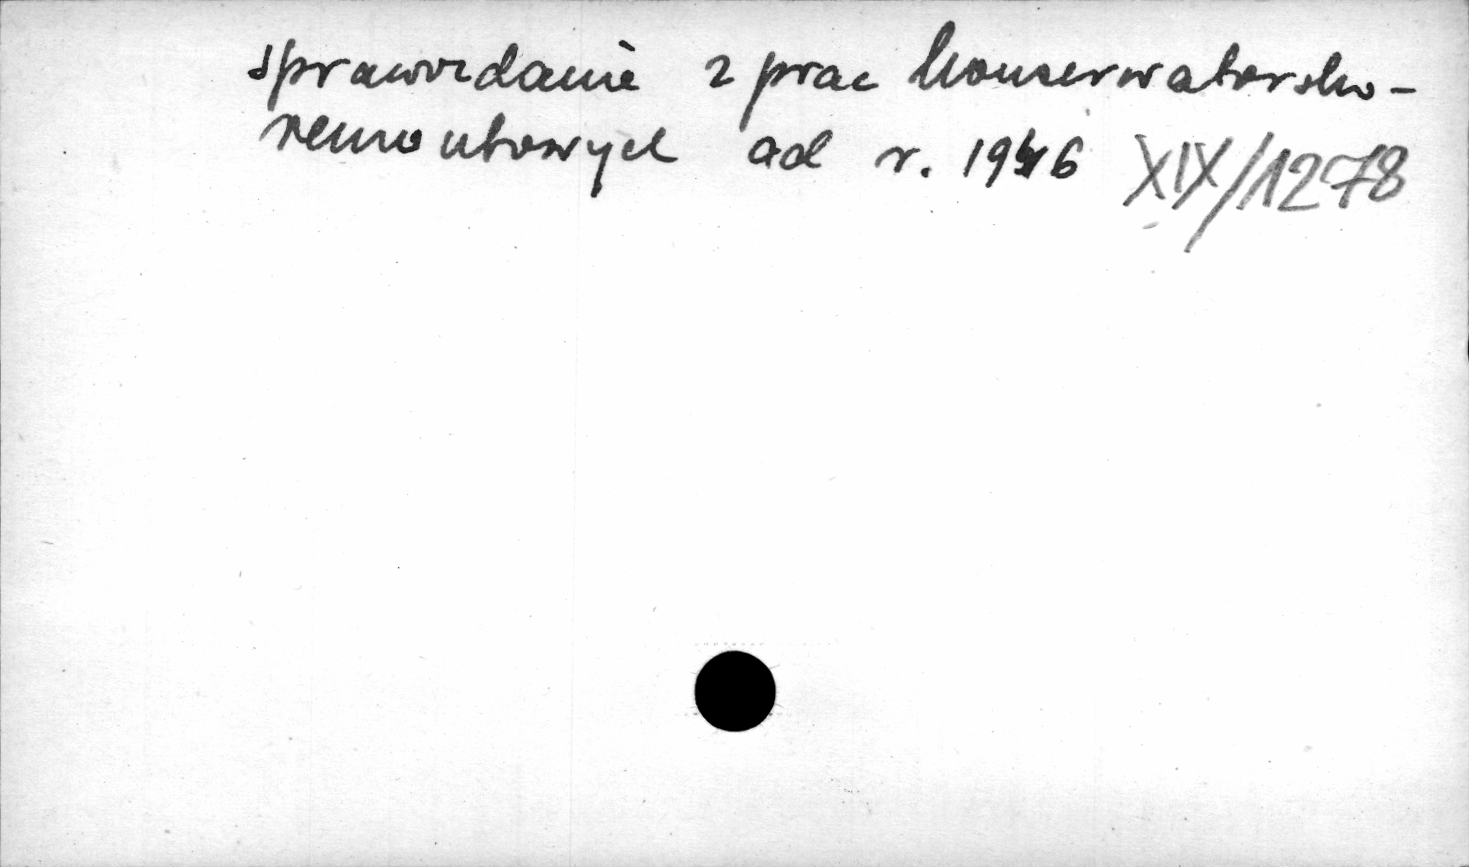 sprawozdanie z prac konserwatorsko-
remontowych od r. 1946 XIX/1278